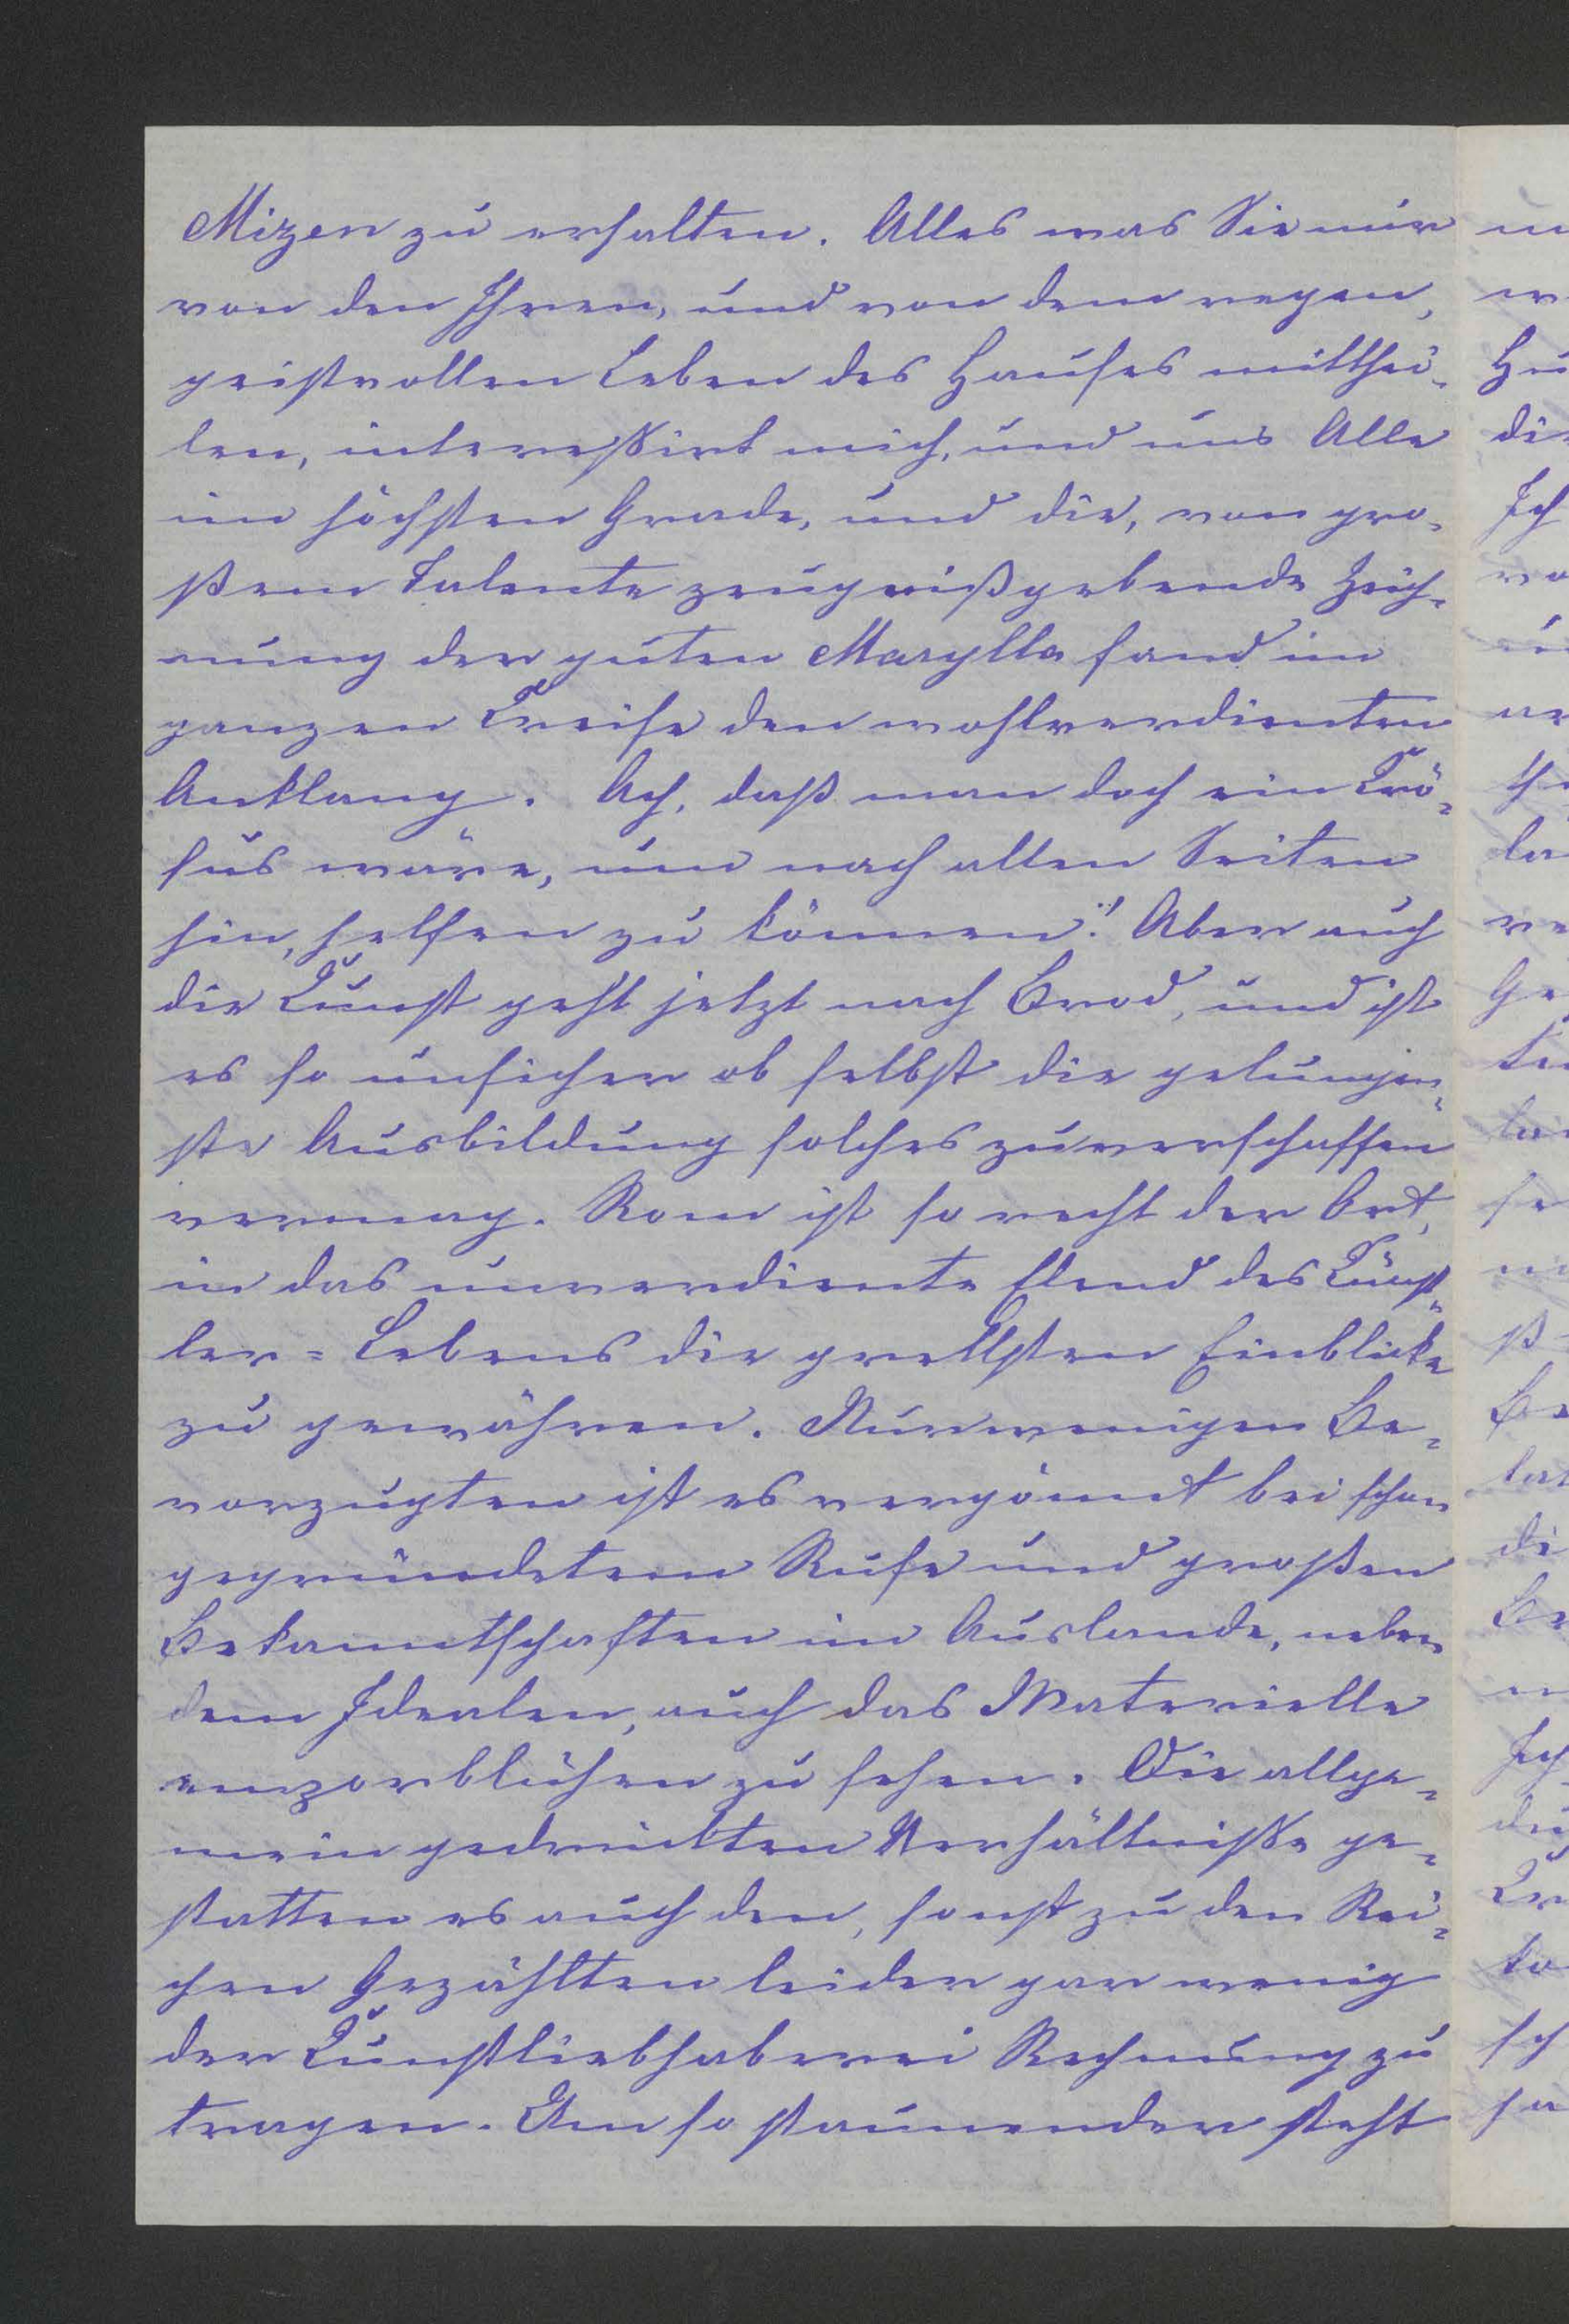 Mizen zu erhalten. Alles was Sie mir
von den Ihren, und von dem regen,
geistvollen Leben des Hauses mitthei-
len, intereßirt mich, und uns Alle
im höchsten Grade, und die, von gro-
ßem Talente zeugnißgebende Zeich-
nung der guten Marylla fand im
ganzen Kreise den wohlverdienten
Anklang. Ach, daß man doch ein Krö-
sus wäre, um nach allen Seiten
hin, helfen zu können! Aber auch
die Kunst geht jetzt nach Brod, und ist
es so unsicher ob selbst die gelungen-
ste Ausbildung solches zu verschaffen
vermag. Rom ist so recht der Ort,
in das unverdiente Elend des Künst-
ler-Lebens die grellsten Einblicke
zu gewähren. Nur wenigen Be-
vorzugten ist es vergönnt bei schon
gegründetem Rufe und großen
Bekanntschaften im Auslande, neben
dem Idealen, auch das Materielle
emporblühen zu sehen. Die allge-
mein gedrückten Verhältniße ge-
statten es auch den, sonst zu den Rei-
chen Gezählten leider gar wenig
der Kunstliebhaberei Rechnung zu
tragen. Um so staunender steht